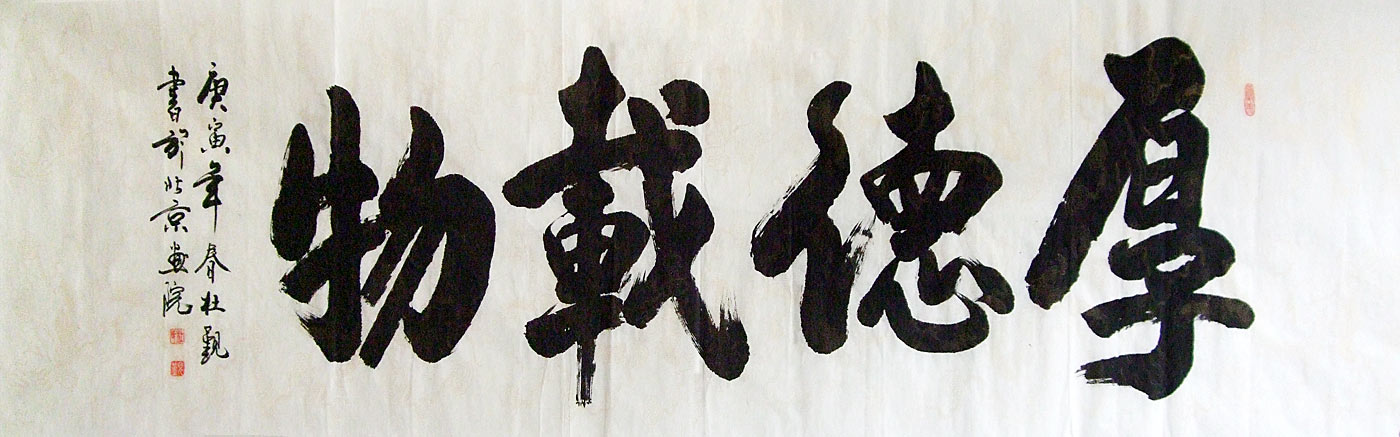 厚德載物
庚寅年春杜觀
書於北京畫院